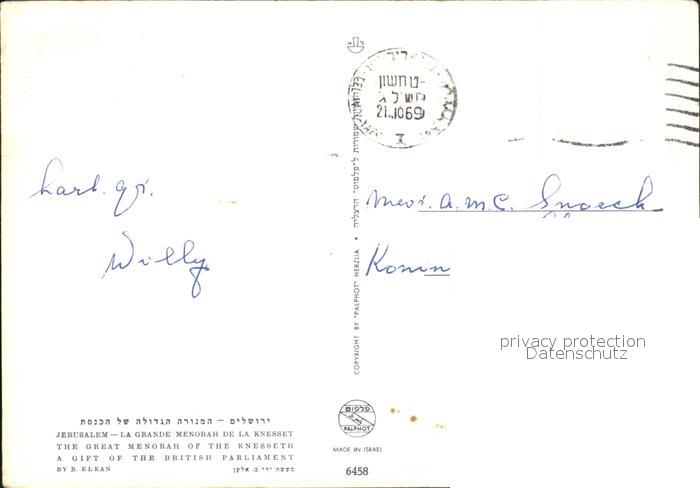 hart. gr.
Willy
ירושלים – המנורה הגדולה של הכנסת
JERUSALEM – LA GRANDE MENORAH DE LA KNESSET
THE GREAT MENORAH OF THE KNESSETH
A GIFT OF THE BRITISH PARLIAMENT
BY B. ELKAN
מעשה ידי ב. אלקן
COPYRIGHT BY "PALPHOT" HERZLIA • כל הזכויות שמורות ל"פלפוט" הרצליה
חשון
21.10.69
Mevr. A.M.C. Snoeck
Konin
privacy protection
Datenschutz
פלפוט
PALPHOT
MADE IN ISRAEL
6458